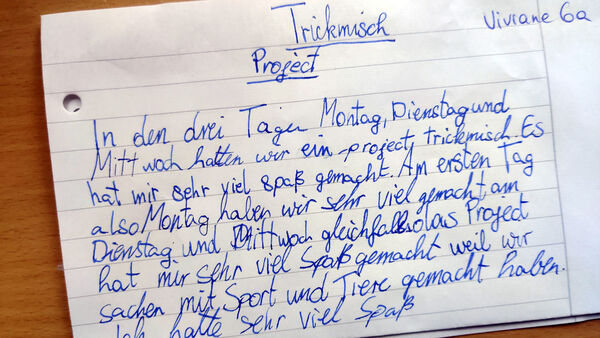 Trickmisch
Viviane 6a
Project
In den drei Tagen Montag, Dienstag und
Mittwoch hatten wir ein project trickmisch. Es
hat mir sehr viel spaß gemacht. Am ersten Tag
also Montag haben wir sehr viel gemacht am
Dienstag und Mittwoch gleichfalls das Project
hat mir sehr viel Spaß gemacht weil wir
sachen mit Sport und Tiere gemacht haben.
Ich hatte sehr viel Spaß